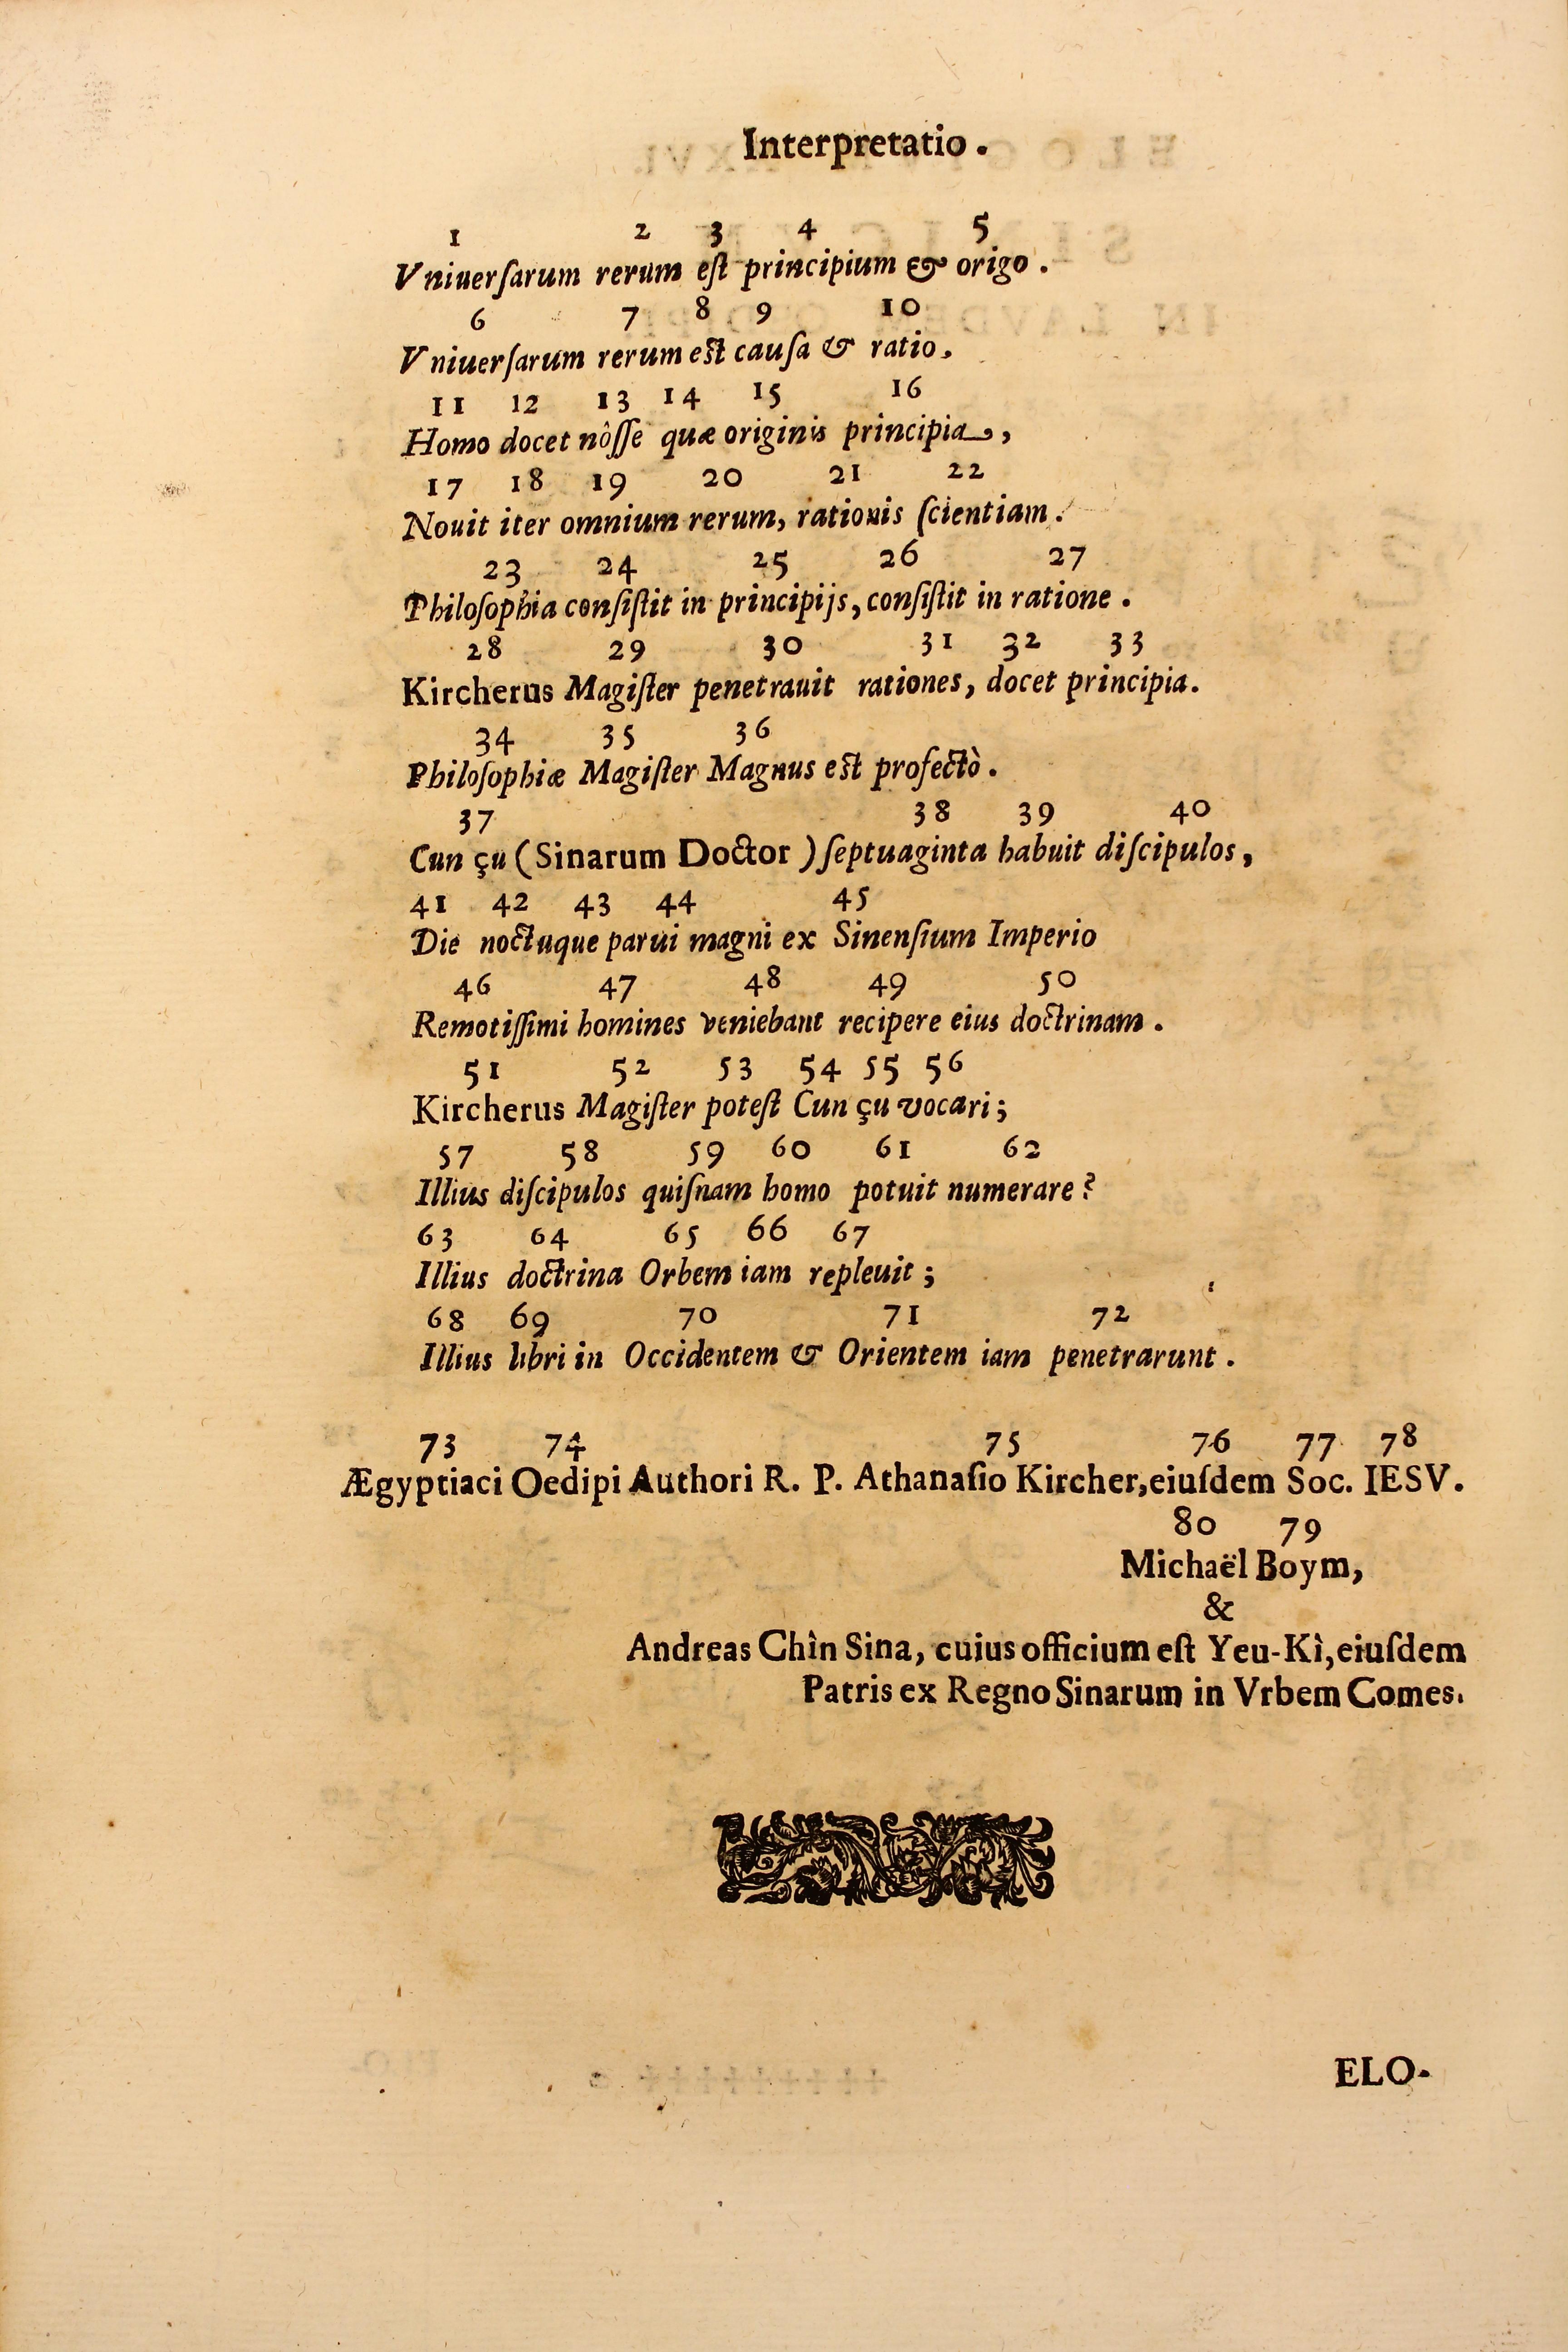 Interpretatio.
1 2 3 4 5
Vniuerſarum rerum eſt principium & origo.
6 7 8 9 10
Vniuerſarum rerum eſt cauſa & ratio.
11 12 13 14 15 16
Homo docet nôſſe quæ originis principia,
17 18 19 20 21 22
Nouit iter omnium rerum, rationis ſcientiam.
23 24 25 26 27
Philoſophia conſiſtit in principijs, conſiſtit in ratione.
28 29 30 31 32 33
Kircherus Magiſter penetrauit rationes, docet principia.
34 35 36
Philoſophiæ Magiſter Magnus eſt profectò.
37 38 39 40
Cun çu (Sinarum Doctor) ſeptuaginta habuit diſcipulos,
41 42 43 44 45
Die noctuque parui magni ex Sinenſium Imperio
46 47 48 49 50
Remotiſſimi homines veniebant recipere eius doctrinam.
51 52 53 54 55 56
Kircherus Magiſter poteſt Cun çu vocari;
57 58 59 60 61 62
Illius diſcipulos quiſnam homo potuit numerare?
63 64 65 66 67
Illius doctrina Orbem iam repleuit;
68 69 70 71 72
Illius libri in Occidentem & Orientem iam penetrarunt.
73 74 75 76 77 78
Ægyptiaci Oedipi Authori R. P. Athanaſio Kircher, eiuſdem Soc. IESV.
80 79
Michaël Boym,
&
Andreas Chîn Sina, cuius officium eſt Yeu-Kì, eiuſdem
Patris ex Regno Sinarum in Vrbem Comes.
ELO-